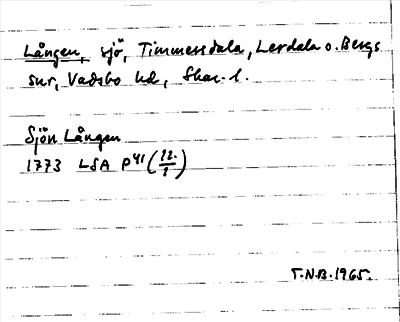 Lången, sjö, Timmersdala, Lerdala o. Bergs
snr, Vadsbo hd, Skar. l.
Sjön Lången
1773 LSA P41 (12/1)
T.N.B. 1965.